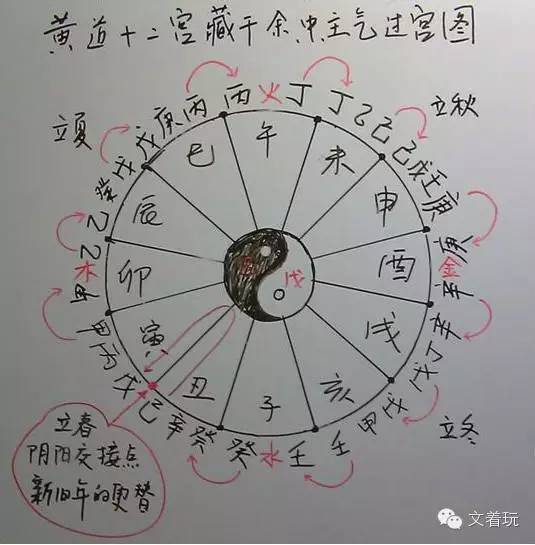 黄道十二宫藏干余中主气过宫图
立夏
戊庚丙
丙火丁
丁乙己
立秋
己戊壬庚
庚金辛
辛丁戊
立冬
戊甲壬
壬水癸
癸辛己
戊丙甲
甲木乙
乙癸戊
巳
午
未
申
酉
戌
亥
子
丑
寅
卯
辰
己
戊
立春
阴阳交接点
新旧年的更替
文着玩